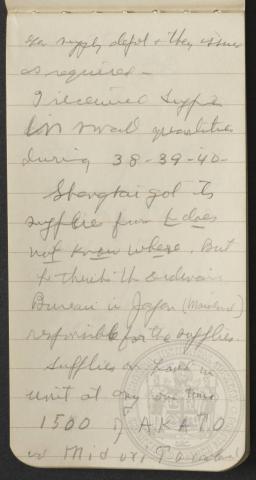 supply depot & they issue
as required —
I received supplies
in small quantities
during 38-39-40-
Shanghai got its
supplies from & does
not know where. But
he thinks the Ordnance
Bureau in Japan (Mainland)
responsible for the supplies.
Supplies on hand in
unit at any one time
1500 of AKATO